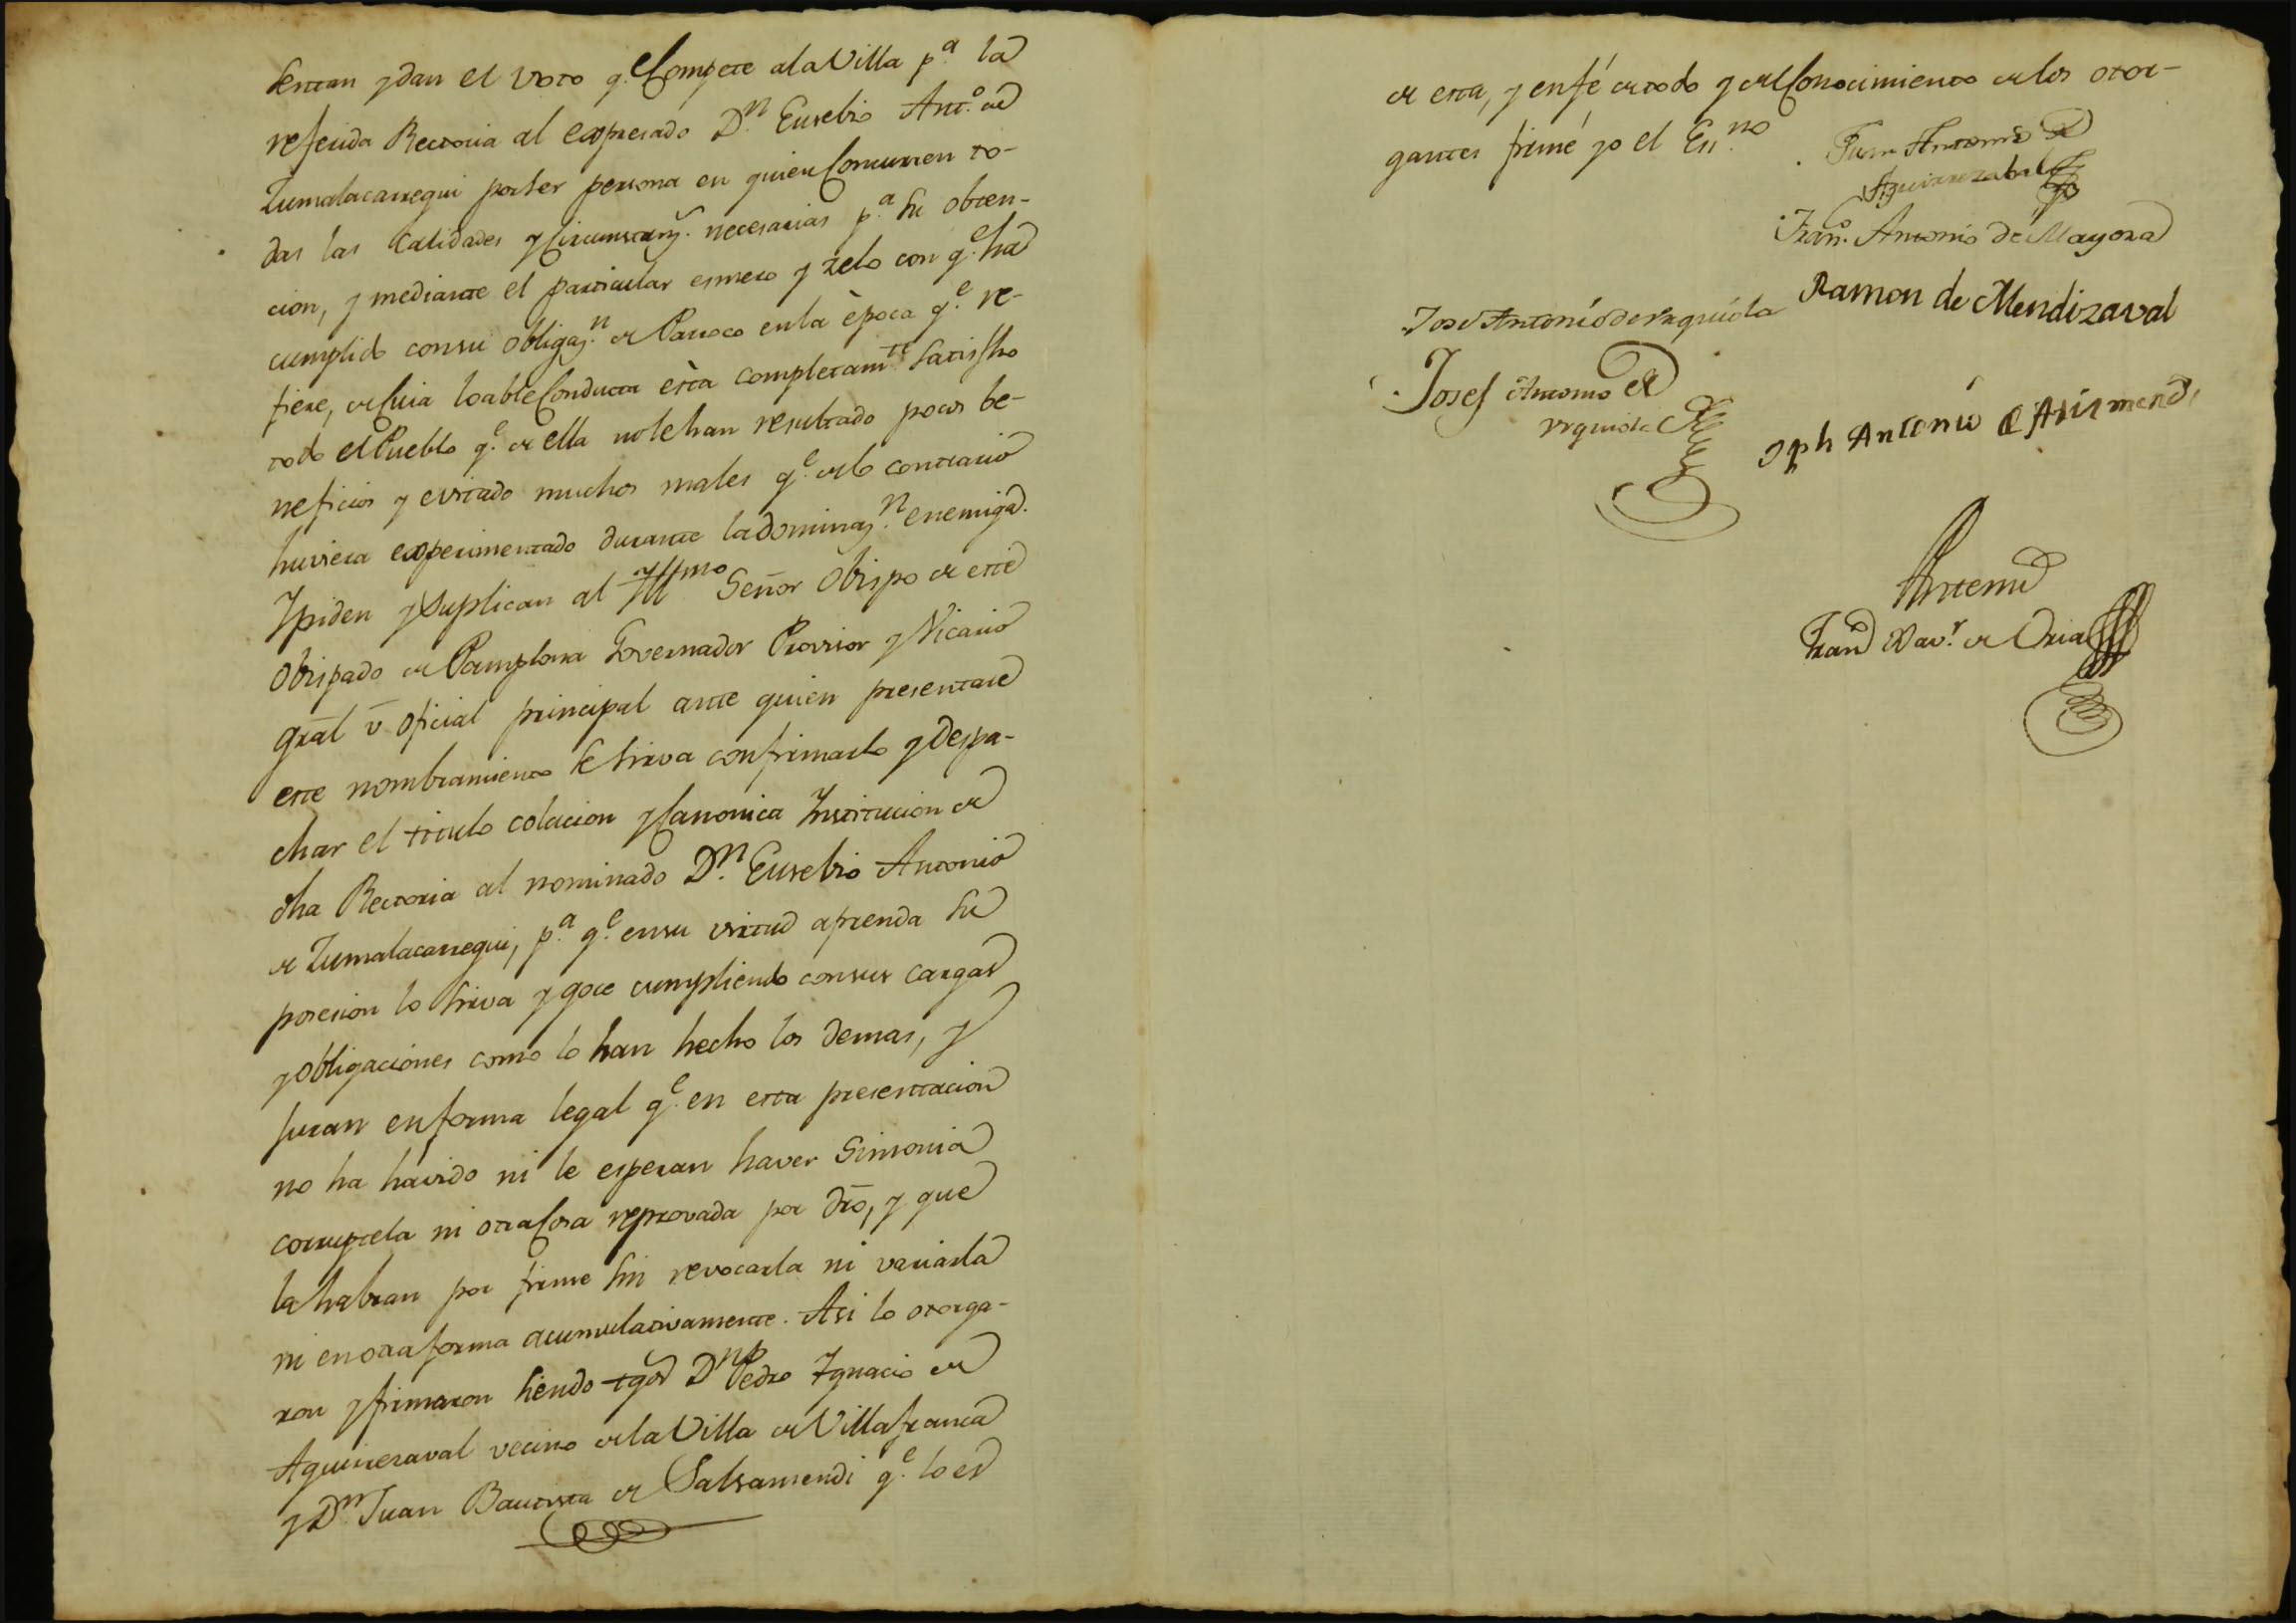 sentan y dan el voto q.e Compete ala Villa p.a la
referida Rectoria al expresado D.n Eusebio Ant.o de
Zumalacarregui por ser persona en quien Concurren to-
das las Calidades y Circunstanz.s necesarias p.a su obten-
cion, y mediante el particular esmero y zelo con q.e ha
cumplido con su obligaz.n de Parroco en la època q.e re-
fiere, de Cuia loable Conducta està completam.te satisfho
todo el Pueblo q.e de ella no le han resultado pocos be-
neficios y evitado muchos males q.e de lo contrario
huviera experimentado durante la dominaz.n enemiga.
Y piden y Suplican al Yll.mo Señor Obispo de este
Obispado de Pamplona Governador Provisor y Vicario
grãl v̄ oficial principal ante quien presentare
este nombramiento se sirva confirmarlo y Despa-
char el titulo colacion y Canonica Institucion de
dha Rectoria al nominado D.n Eusebio Antonio
de Zumalacarregui, p.a q.e en su virtud aprenda su
posesion lo sirva y goce cumpliendo con sus cargas
y obligaciones como lo han hecho los demas, y
juran en forma legal q.e en esta presentacion
no ha havido ni le esperan haver Simonia
corruptela ni otra Cosa reprovada por drõ, y que
la habran por firme sin revocarla ni variarla
ni en otra forma acumulativamente. Asi lo otorga-
ron y firmaron siendo tgos D.n Pedro Ygnacio de
Aguirresaval vecino de la Villa de Villafranca
y D.n Juan Bautista de Salsamendi q.e lo es
de esta, y en fé de todo y del Conocimiento de los otor-
gantes firmé yo el Es.no
Juan Antonio de
Aguirrezabal
Fran.co Antonio de Mayora
Jose Antonio de Urquiola
Ramon de Mendizaval
Josef Antonio de
Urquiola
Jph Antonio de Arismendi
Ante mi
Fran.co Xav.r de Oria